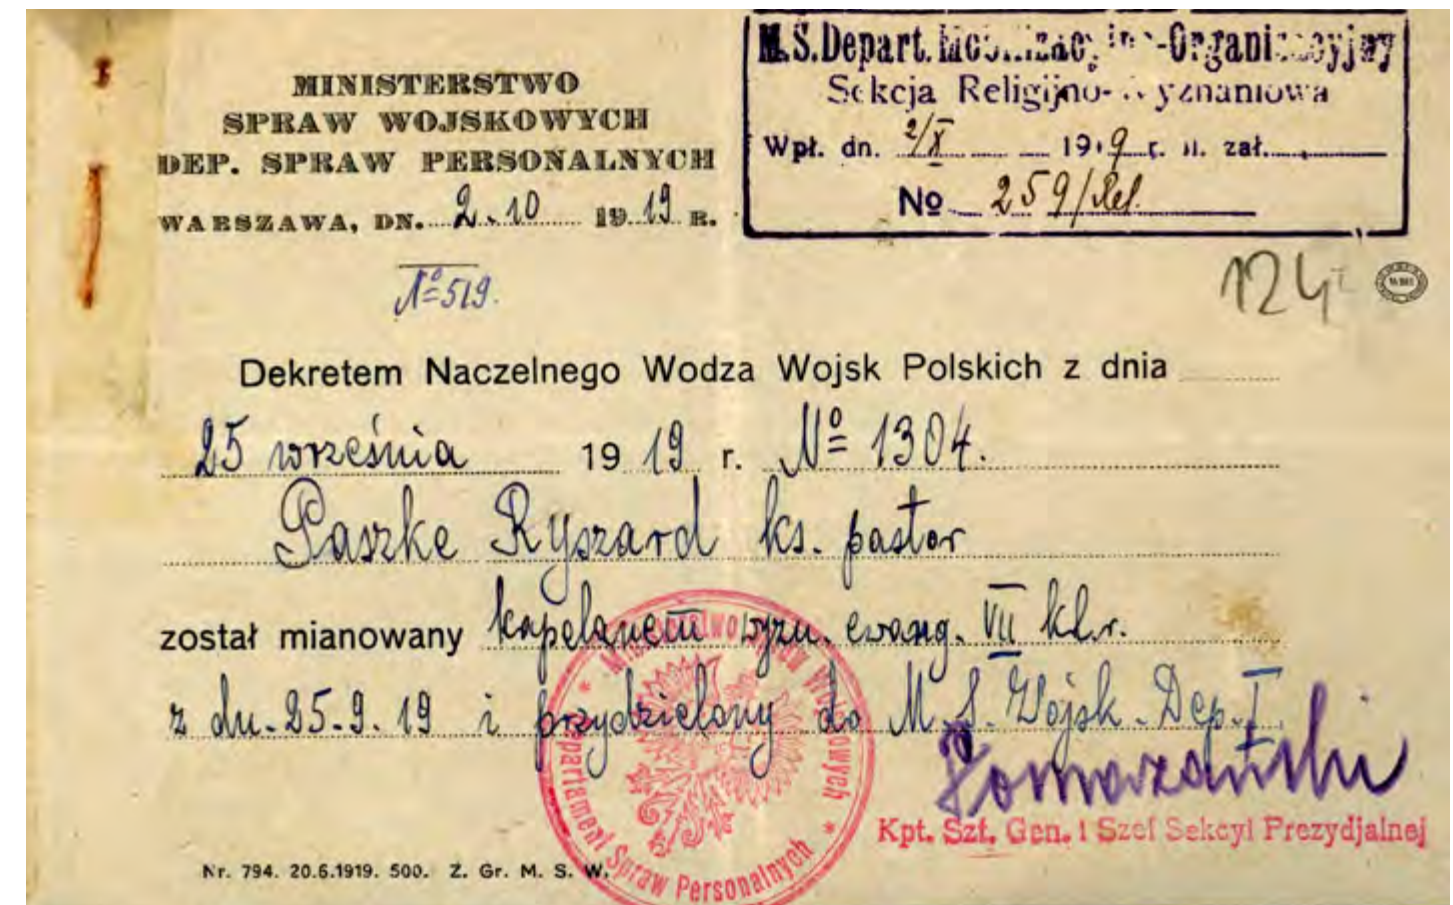 MINISTERSTWO
SPRAW WOJSKOWYCH
DEP. SPRAW PERSONALNYCH
WARSZAWA, DN. 2.10 1919 R.
№ 519.
M.S.Depart. Mobilizacyjno-Organizacyjny
Sekcja Religijno-Wyznaniowa
Wpł. dn. 2/X 1919 r. il. zał.
№ 259/Rel.
124
Dekretem Naczelnego Wodza Wojsk Polskich z dnia
25 września 1919 r. № 1304.
Paszke Ryszard ks. pastor
został mianowany kapelanem wyzn. ewang. VII kl.r.
z dn. 25.9.19 i przydzielony do M.S.Wojsk. Dep. I.
Kpt. Szt. Gen. i Szef Sekcyi Prezydjalnej
Ministerstwo Spraw Wojskowych
Departament Spraw Personalnych
Nr. 794. 20.6.1919. 500. Z. Gr. M. S. W.